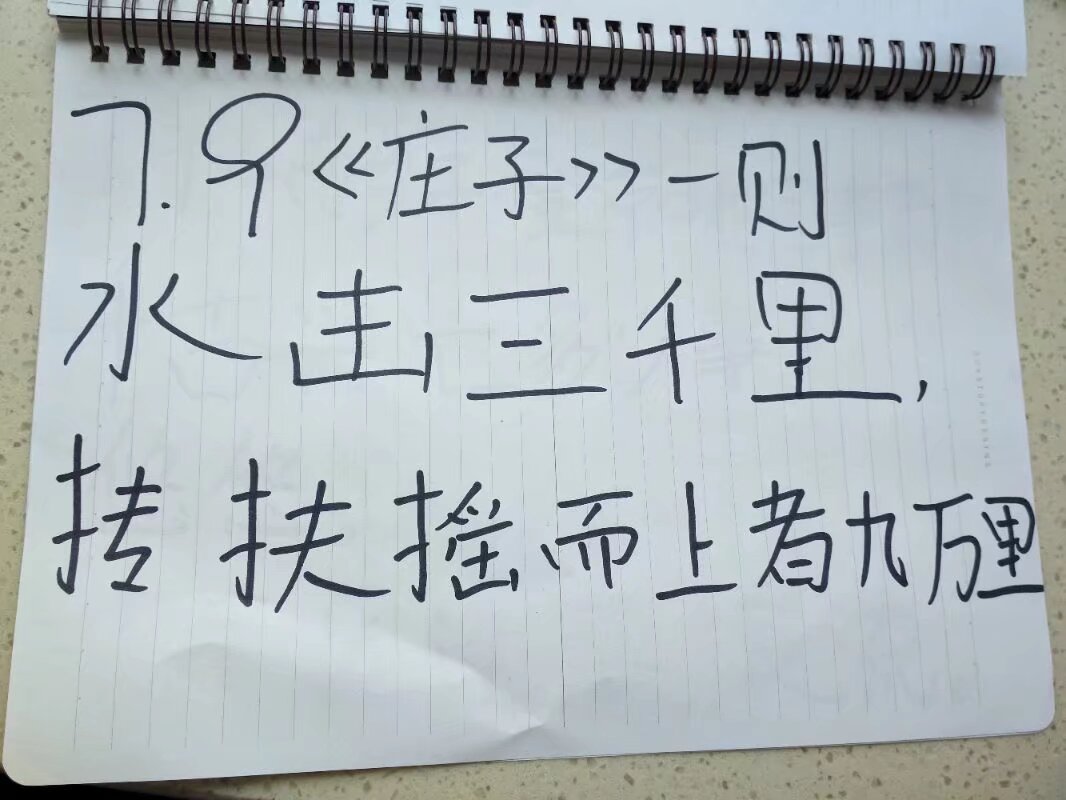 7.9《庄子》一则
水击三千里,
抟扶摇而上者九万里